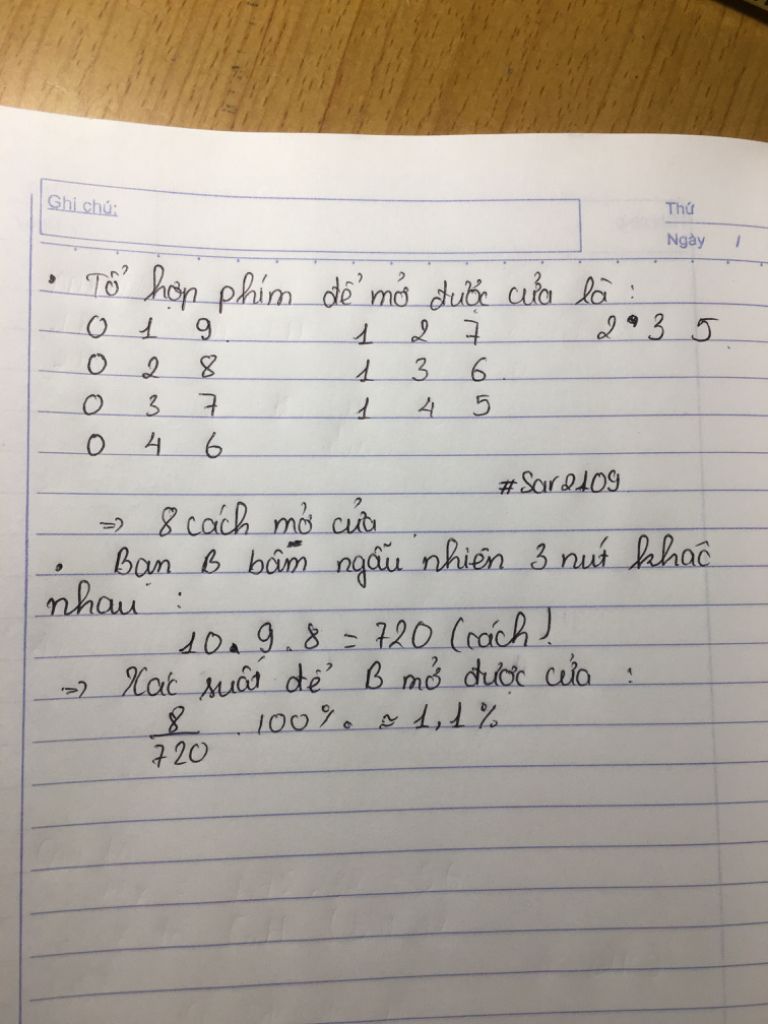 Ghi chú:
Thứ
Ngày /
• Tổ hợp phím để mở được cửa là :
0 1 9 1 2 7 2 3 5
0 2 8 1 3 6
0 3 7 1 4 5
0 4 6
#Sar2109
=> 8 cách mở cửa
• Bạn B bấm ngẫu nhiên 3 nút khác
nhau :
10 . 9 . 8 = 720 (cách)
=> Xác suất để B mở được cửa :
8/720 . 100% ≈ 1,1%